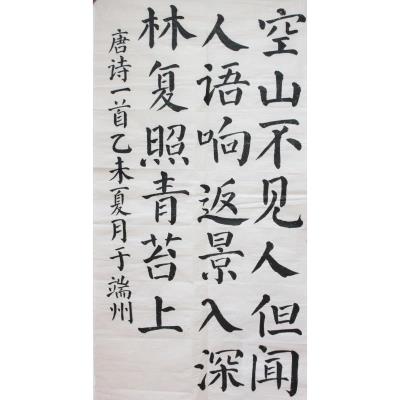 空山不见人但闻
人语响返景入深
林复照青苔上
唐诗一首乙未夏月于端州